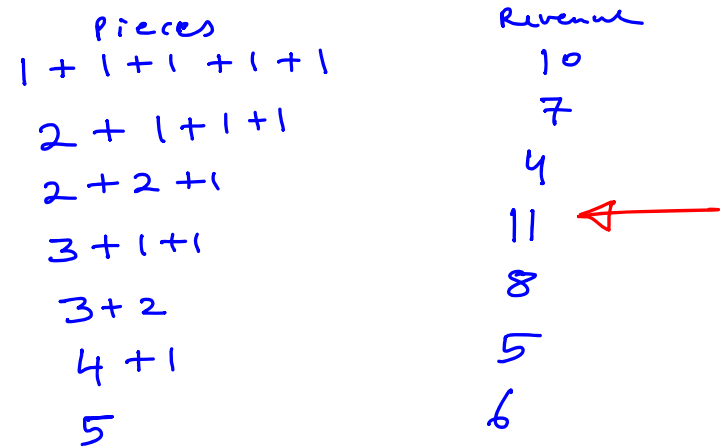 Pieces Revenue
1 + 1 + 1 + 1 + 1 10
2 + 1 + 1 + 1 7
2 + 2 + 1 4
3 + 1 + 1 11
3 + 2 8
4 + 1 5
5 6